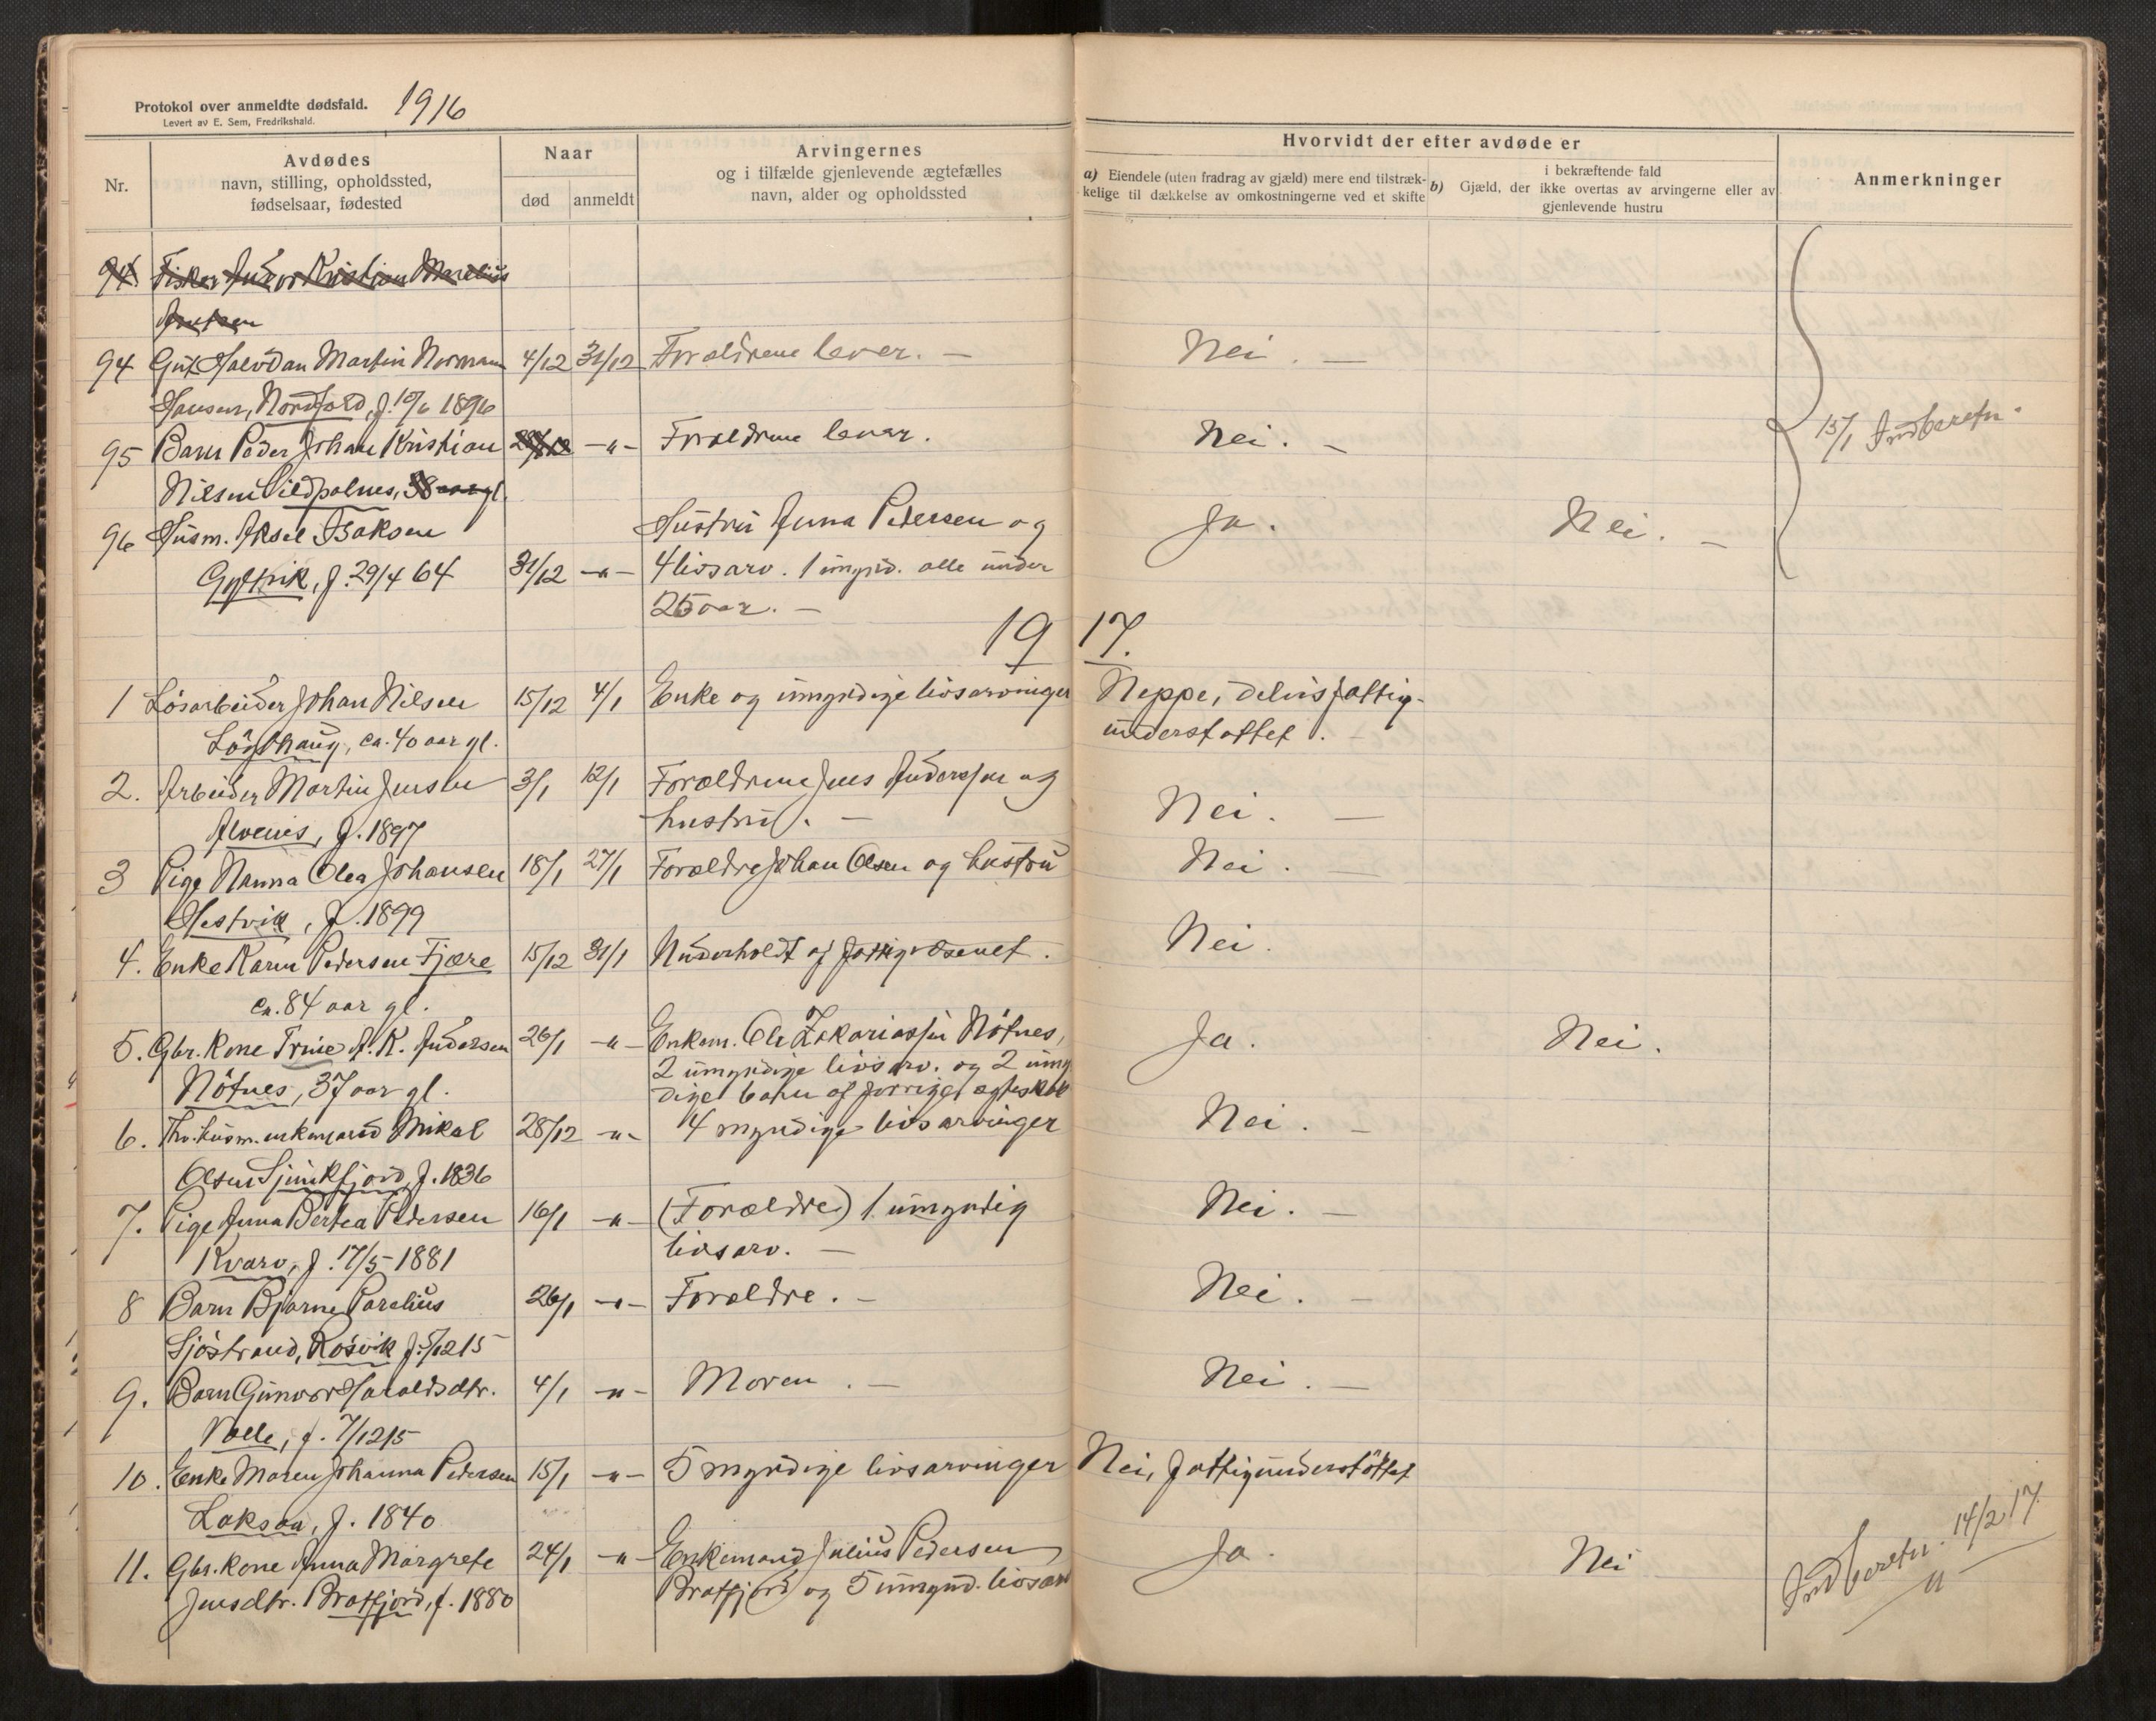 Protokol over anmeldte dødsfald. 1916
Levert av E. Sem, Fredrikshald.
Hvorvidt der efter avdøde er
Nr.
Avdødes
navn, stilling, opholdssted,
fødselsaar, fødested
Naar
død anmeldt
Arvingernes
og i tilfælde gjenlevende ægtefælles
navn, alder og opholdssted
a) Eiendele (uten fradrag av gjæld) mere end tilstræk-
kelige til dækkelse av omkostningerne ved et skifte
b) Gjæld, der i bekræftende fald
ikke overtas av arvingerne eller av
gjenlevende hustru
Anmerkninger
94. Fisker Andor Kristian Marelius
94 Gut Halvdan Martin Norman 4/12 31/12 Forældrene lever. — Nei. —
Hansen, Nordfold, f. 10/6 1896
95 Barn Peder Johan Kristian —"— Forældrene lever. Nei. — 15/1 Indberetn.
Nilsen Sildpolnes, 38 aar gl.
96 Husm. Aksel Isaksen Hustru Anna Petersen og Ja. Nei. —
Gyltvik, f. 29/4 64 31/12 —"— 4 livsarv. 1 umynd. alle under
25 aar. —
1917.
1 Løsarbeider Johan Nilsen 15/12 4/1 Enke og umyndige livsarvinger Neppe, delvis fattig-
Løgthaug, ca. 40 aar gl. understøttet. —
2. Arbeider Martin Jensen 3/1 12/1 Forældrene Jens Anderssen og Nei. —
Alvenes, f. 1897 hustru. —
3 Pige Nanna Olea Johansen 18/1 27/1 Forældre Johan Olsen og hustru Nei. —
Hestvik, f. 1899
4. Enke Karen Pedersen Fjære 15/12 31/1 Underholdt af fattigvæsenet. Nei.
ca. 84 aar gl.
5. Gbr. kone Trine A. K. Andersen 26/1 —"— Enkem. Ole Zakariassen Nötnes, Ja. Nei.
Nötnes, 37 aar gl. 2 umyndige livsarv. og 2 umyn
dige børn af forrige ægteskab
6. Fhv. husm. enkemand Mikal 28/12 —"— 4 myndige livsarvinger Nei. —
Olsen Sjunkfjord, f. 1836
7. Pige Anna Bertea Pedersen 16/1 —"— (Forældre) 1 umyndig Nei. —
Kvarv, f. 17/5 1881 livsarv. —
8 Barn Bjarne Parelius 26/1 —"— Forældre. — Nei. —
Sjöstrand, Rösvik f. 5/12 15
9. Barn Gunvor Haraldsdtr. 4/1 —"— Moren. — Nei. —
Valle, f. 7/12 15
10. Enke Maren Johanna Pedersen 15/1 —"— 5 myndige livsarvinger Nei, fattigunderstöttet
Laksaa, f. 1840
11. Gbr. kone Anna Margrete 24/1 —"— Enkemand Julius Pedersen Ja. Nei Indberetn. 14/2 17.
Jensdtr. Bratfjord, f. 1880 Bratfjord og 5 umynd. livsarv